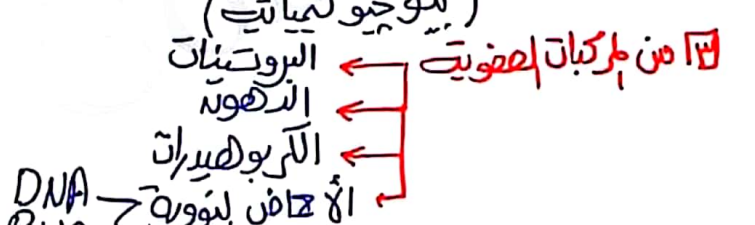 (بيوجيوكيميائية)
٣ من المركبات العضوية
البروتينات
الدهون
الكربوهيدرات
الأحماض النووية
DNA